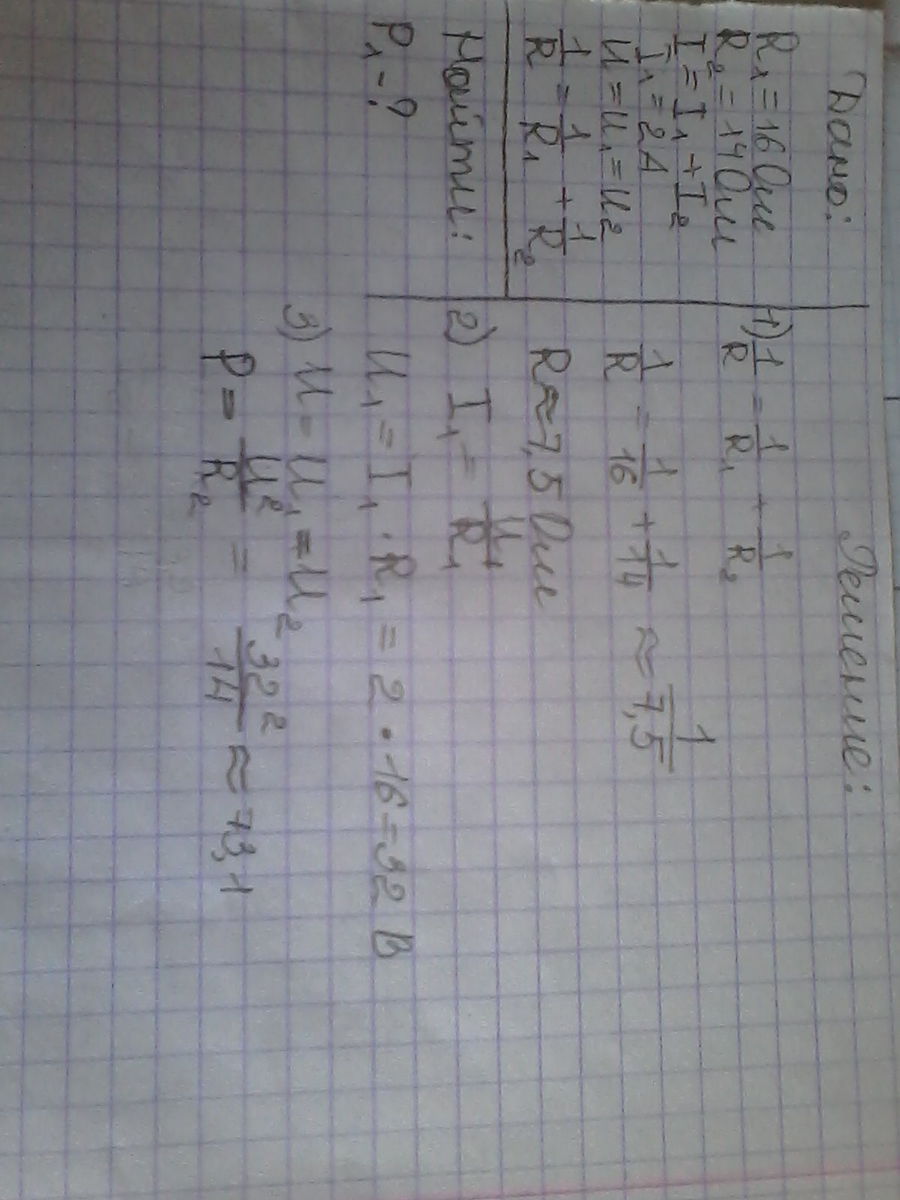 Дано:
R₁ = 16 Ом
R₂ = 14 Ом
I = I₁ + I₂
I₁ = 2A
U = U₁ = U₂
1/R = 1/R₁ + 1/R₂
Найти:
P₁ - ?
Решение:
1) 1/R = 1/R₁ + 1/R₂
1/R = 1/16 + 1/14 ≈ 1/7,5
R ≈ 7,5 Ом
2) I₁ = U₁/R₁
U₁ = I₁ · R₁ = 2 · 16 = 32 В
3) U = U₁ = U₂
P = U²/R₂ = 32²/14 ≈ 73,1